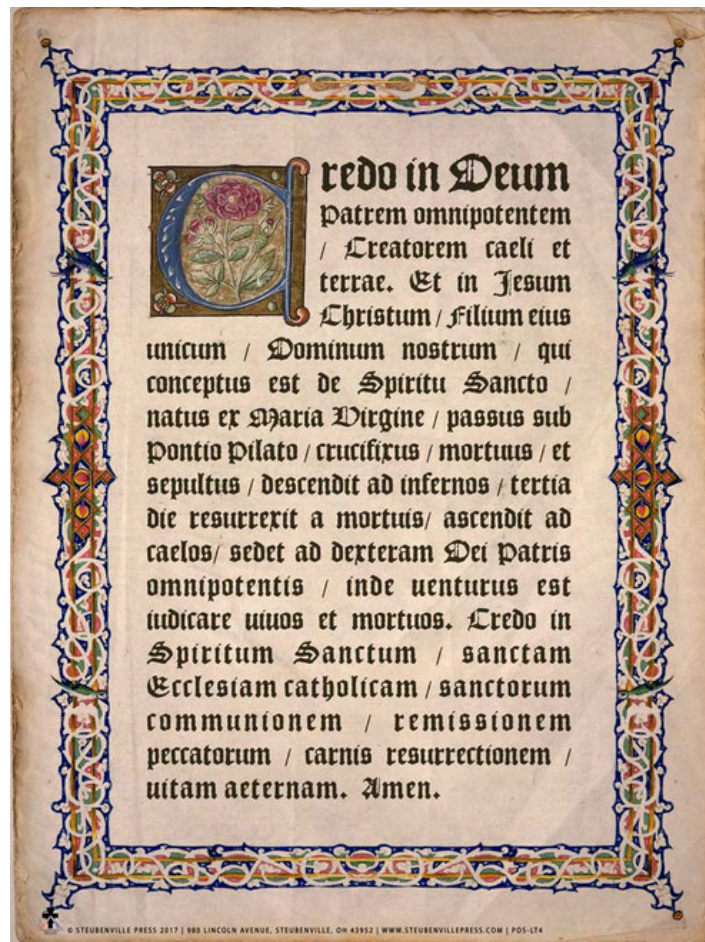 Credo in Deum
Patrem omnipotentem
/ Creatorem caeli et
terrae. Et in Jesum
Christum / Filium eius
unicum / Dominum nostrum / qui
conceptus est de Spiritu Sancto /
natus ex Maria Virgine / passus sub
Pontio Pilato / crucifixus / mortuus / et
sepultus / descendit ad infernos / tertia
die resurrexit a mortuis/ ascendit ad
caelos/ sedet ad dexteram Dei Patris
omnipotentis / inde uenturus est
iudicare uiuos et mortuos. Credo in
Spiritum Sanctum / sanctam
Ecclesiam catholicam / sanctorum
communionem / remissionem
peccatorum / carnis resurrectionem /
uitam aeternam. Amen.
© STEUBENVILLE PRESS 2017 | 980 LINCOLN AVENUE, STEUBENVILLE, OH 43952 | WWW.STEUBENVILLEPRESS.COM | POS-LT4